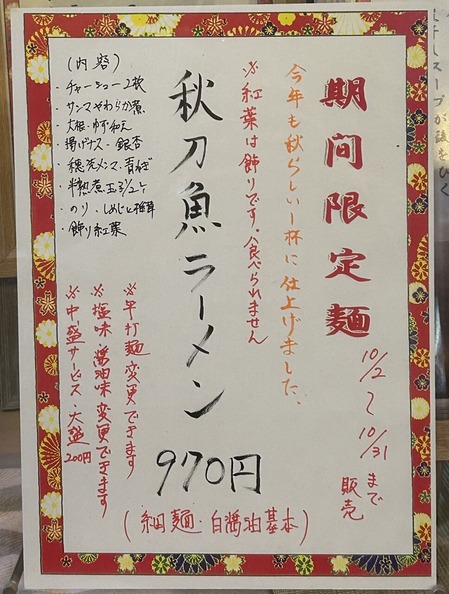 期間限定麺
10/2〜10/31まで
販売
今年も秋らしい一杯に仕上げました、
※紅葉は飾りです、食べられません
秋刀魚ラーメン
970円
(細麺・白醤油基本)
(内容)
・チャーシュー2枚
・サンマやわらか煮
・大根・ゆず和え
・揚げナス・銀杏
・穂先メンマ・青ねぎ
・半熟煮玉子1/2ヶ
・のり・しめじと椎茸
・飾り紅葉
※平打麺変更できます
※塩味 醤油味変更できます
※中盛サービス・大盛200円
スープが